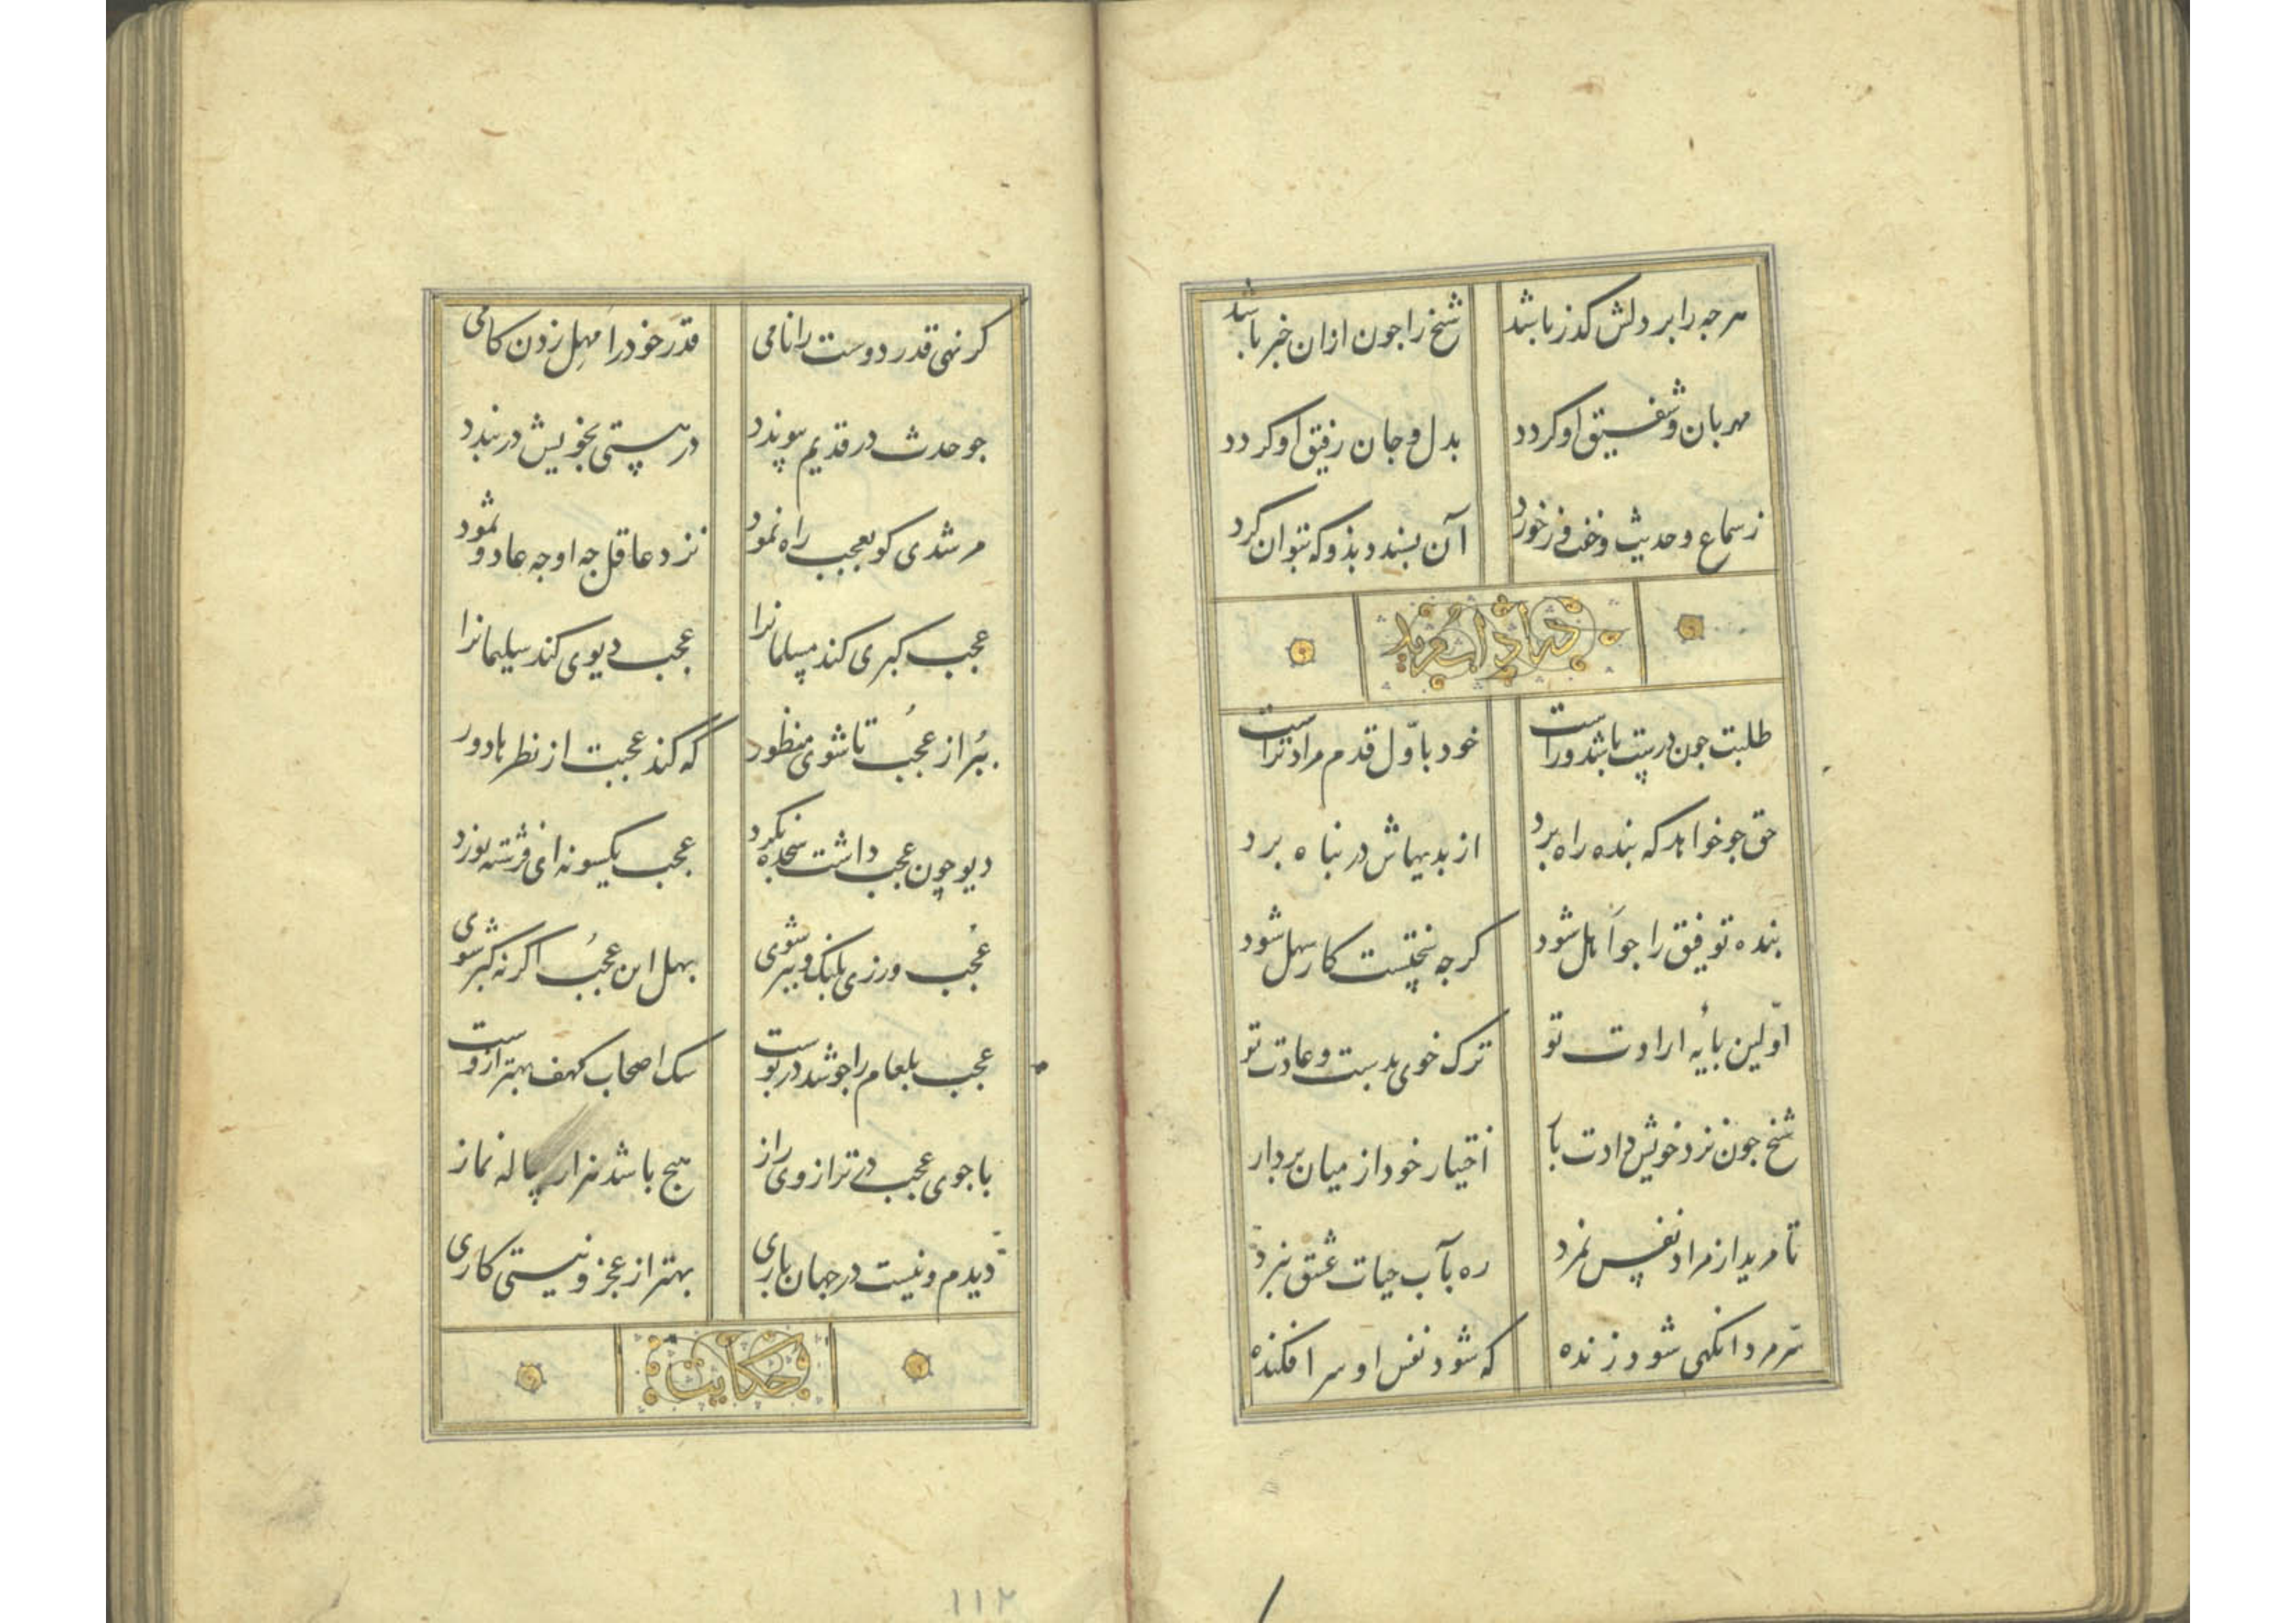 هرجه را بر دلش کذر باشد شیخ را جون ازان خبر باشد
مهربان و شفیق او کردد بدل و جان رفیق او کردد
ز سماع و حدیث و خفت و ز خورد آن بسندد بذو که بتوان کرد
در ارادت مرید
طلبت جون درست باشد و راست خود باوّل قدم مراد تراست
حق جو خواهد که بنده راه برد از بدیهاش در پناه برد
بنده توفیق را جو اَهل شود کرجه سختیست کار سهل شود
اوّلین بایهٔ ارادت تو ترک خوی بدست و عادت تو
شیخ جون نزد خویش دادت بار اختیار خود از میان بردار
تا مرید از مراد نفس نمرد ره بآب حیات عشق نبرد
سّر مرد انکهی شود زنده که شود نفس او سر افکنده
کر نهی قدر دوست را نامی قدر خود را مهِل زدن کامی
جو حدث در قدیم پیوندد در هستی بخویش دربندد
مرشدی کو بعجب راه نمود نزد عاقل جه او جه عاد و ثمود
عجب کبری کند مسلمانرا عجب دیوی کند سلیمانرا
ببُر از عُجب تا شوی منظور که کند عجبت از نظرها دور
دیو چون عجب داشت سجده نکرد عجب یکسو نه ای فرشته نورد
عُجب ورزی بلنک و ببر شوی بهل این عجُب اکر نه کبر شوی
عجب بلعام را جو شد در بوست سک اصحاب کهف بهتر ازوست
با جوی عجب در ترازوی راز هیج باشد هزار ساله نماز
دیدم و نیست در جهان باری بهتر از عجز و نیستی کاری
حکایت
۱۱۲